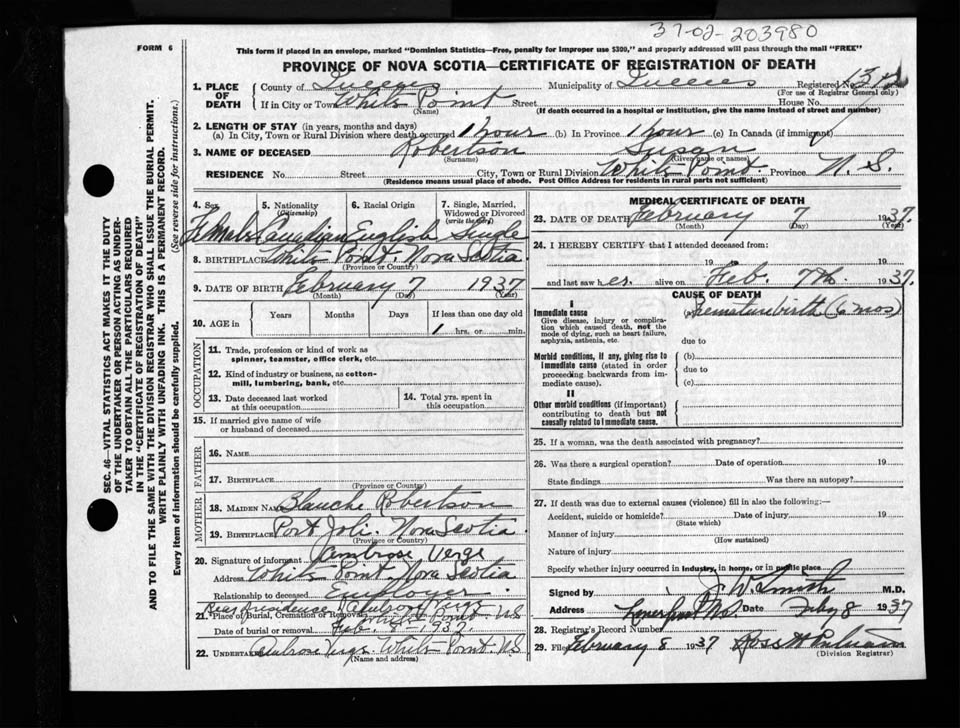 37-02-203980
FORM 6
This form if placed in an envelope, marked "Dominion Statistics—Free, penalty for improper use $300," and properly addressed will pass through the mail "FREE"
PROVINCE OF NOVA SCOTIA—CERTIFICATE OF REGISTRATION OF DEATH
1. PLACE OF DEATH
County of Queens Municipality of Queens Registered No.
(For use of Registrar General only)
If in City or Town White Point Street House No.
(Name) (If death occurred in a hospital or institution, give the name instead of street and number)
2. LENGTH OF STAY (in years, months and days)
(a) In City, Town or Rural Division where death occurred 1 hour (b) In Province 1 hour (c) In Canada (if immigrant)
3. NAME OF DECEASED Robertson Susan
(Surname) (Given name or names)
RESIDENCE No. Street City, Town or Rural Division White Point. Province N.S.
(Residence means usual place of abode. Post Office Address for residents in rural parts not sufficient)
4. Sex 5. Nationality (Citizenship) 6. Racial Origin 7. Single, Married, Widowed or Divorced (write the word)
Female Canadian English Single
8. BIRTHPLACE White Point. Nova Scotia
(Province or Country)
9. DATE OF BIRTH February 7 1937
(Month) (Day) (Year)
10. AGE in Years Months Days If less than one day old
1 hrs. or min.
OCCUPATION
11. Trade, profession or kind of work as spinner, teamster, office clerk, etc.
12. Kind of industry or business, as cotton-mill, lumbering, bank, etc.
13. Date deceased last worked at this occupation
14. Total yrs. spent in this occupation
15. If married give name of wife or husband of deceased
FATHER
16. NAME
17. BIRTHPLACE
(Province or Country)
MOTHER
18. MAIDEN NAME Blanche Robertson
19. BIRTHPLACE Port Jolie Nova Scotia
(Province or Country)
20. Signature of informant Ambrose Verge
Address White Point. Nova Scotia
Relationship to deceased Employer
21. Place of Burial, Cremation or Removal Rear Residence White Point N.S
Date of burial or removal Feb. 8 - 1937.
22. UNDERTAKER Verge White Point. N.S
(Name and address)
MEDICAL CERTIFICATE OF DEATH
23. DATE OF DEATH February 7 1937.
(Month) (Day) (Year)
24. I HEREBY CERTIFY that I attended deceased from:
19 to 19
and last saw her alive on Feb. 7th. 1937.
CAUSE OF DEATH
I
Immediate cause
Give disease, injury or complication which caused death, not the mode of dying, such as heart failure, asphyxia, asthenia, etc.
Premature birth (6 mos)
due to
Morbid conditions, if any, giving rise to immediate cause (stated in order proceeding backwards from immediate cause).
(b)
due to
(c)
II
Other morbid conditions (if important) contributing to death but not causally related to immediate cause.
25. If a woman, was the death associated with pregnancy?
26. Was there a surgical operation? Date of operation 19
State findings Was there an autopsy?
27. If death was due to external causes (violence) fill in also the following:—
Accident, suicide or homicide? Date of injury 19
(State which)
Manner of injury
(How sustained)
Nature of injury
Specify whether injury occurred in industry, in home, or in public place
Signed by J. W. Smith M.D.
Address Liverpool N.S. Date Feby 8 1937
28. Registrar's Record Number
29. Filed February 8 1937 Ross
(Division Registrar)
SEC. 46—VITAL STATISTICS ACT MAKES IT THE DUTY
OF THE UNDERTAKER OR PERSON ACTING AS UNDER-
TAKER TO OBTAIN ALL THE PARTICULARS REQUIRED
IN THE "CERTIFICATE OF REGISTRATION OF DEATH"
AND TO FILE THE SAME WITH THE DIVISION REGISTRAR WHO SHALL ISSUE THE BURIAL PERMIT.
WRITE PLAINLY WITH UNFADING INK. THIS IS A PERMANENT RECORD.
Every item of information should be carefully supplied. (See reverse side for instructions.)